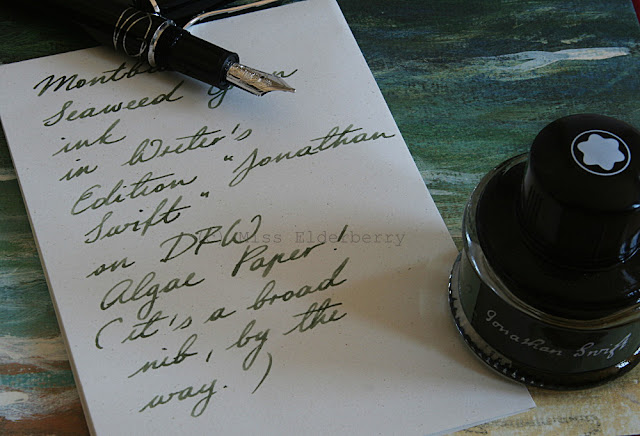 Seaweed
ink
in Writer's
Edition "Jonathan
Swift"
on DRW
Algae Paper!
(it's a broad
nib, by the
way.)
Miss Elderberry
Jonathan Swift